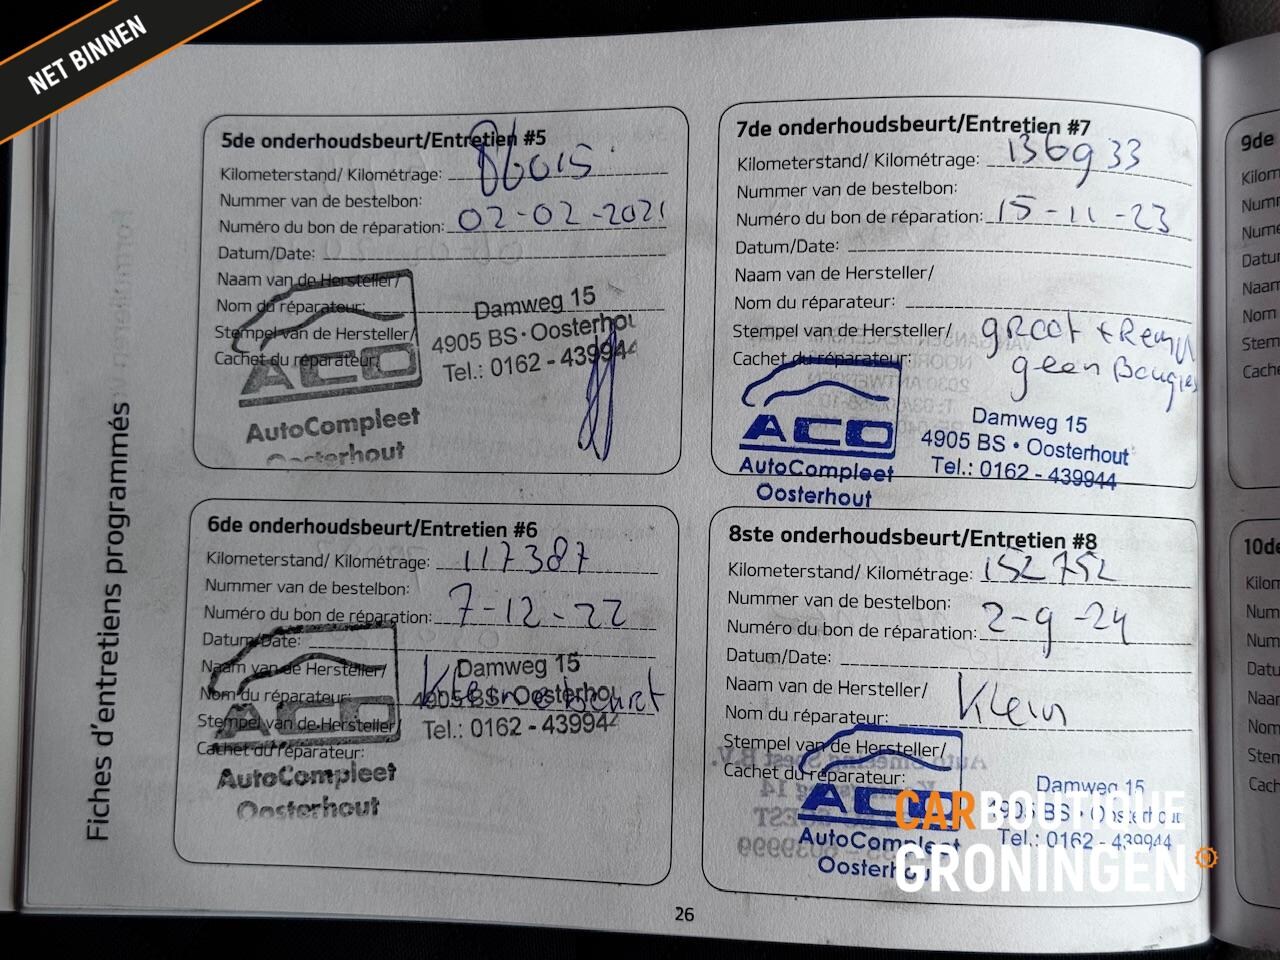 NET BINNEN
Fiches d'entretiens programmés
5de onderhoudsbeurt/Entretien #5
Kilometerstand/ Kilométrage: 86015
Nummer van de bestelbon:
Numéro du bon de réparation: 02-02-2021
Datum/Date:
Naam van de Hersteller/
Nom du réparateur:
Stempel van de Hersteller/
Cachet du réparateur:
ACO
AutoCompleet
Oosterhout
Damweg 15
4905 BS · Oosterhou
Tel.: 0162 - 439944
6de onderhoudsbeurt/Entretien #6
Kilometerstand/ Kilométrage: 117387
Nummer van de bestelbon:
Numéro du bon de réparation: 7-12-22
Datum/Date:
Naam van de Hersteller/
Nom du réparateur:
Stempel van de Hersteller/
Cachet du réparateur:
Kleine beurt
ACO
AutoCompleet
Oosterhout
Damweg 15
4905 BS · Oosterhou
Tel.: 0162 - 439944
7de onderhoudsbeurt/Entretien #7
Kilometerstand/ Kilométrage: 136933
Nummer van de bestelbon:
Numéro du bon de réparation: 15-11-23
Datum/Date:
Naam van de Hersteller/
Nom du réparateur:
Stempel van de Hersteller/
Cachet du réparateur:
groot +
geen Bougies
ACO
AutoCompleet
Oosterhout
Damweg 15
4905 BS · Oosterhout
Tel.: 0162 - 439944
8ste onderhoudsbeurt/Entretien #8
Kilometerstand/ Kilométrage: 152752
Nummer van de bestelbon:
Numéro du bon de réparation: 2-9-24
Datum/Date:
Naam van de Hersteller/
Nom du réparateur: Klein
Stempel van de Hersteller/
Cachet du réparateur:
ACO
AutoCompleet
Oosterhou
Damweg 15
4905 BS · Oosterhout
Tel.: 0162 - 439944
26
9de
Kilom
Numm
Numé
Datu
Naam
Nom
Stem
Cache
10de
Kilom
Num
Num
Datu
Naar
Nom
Sten
Cach
CARBOUTIQUE
GRONINGEN